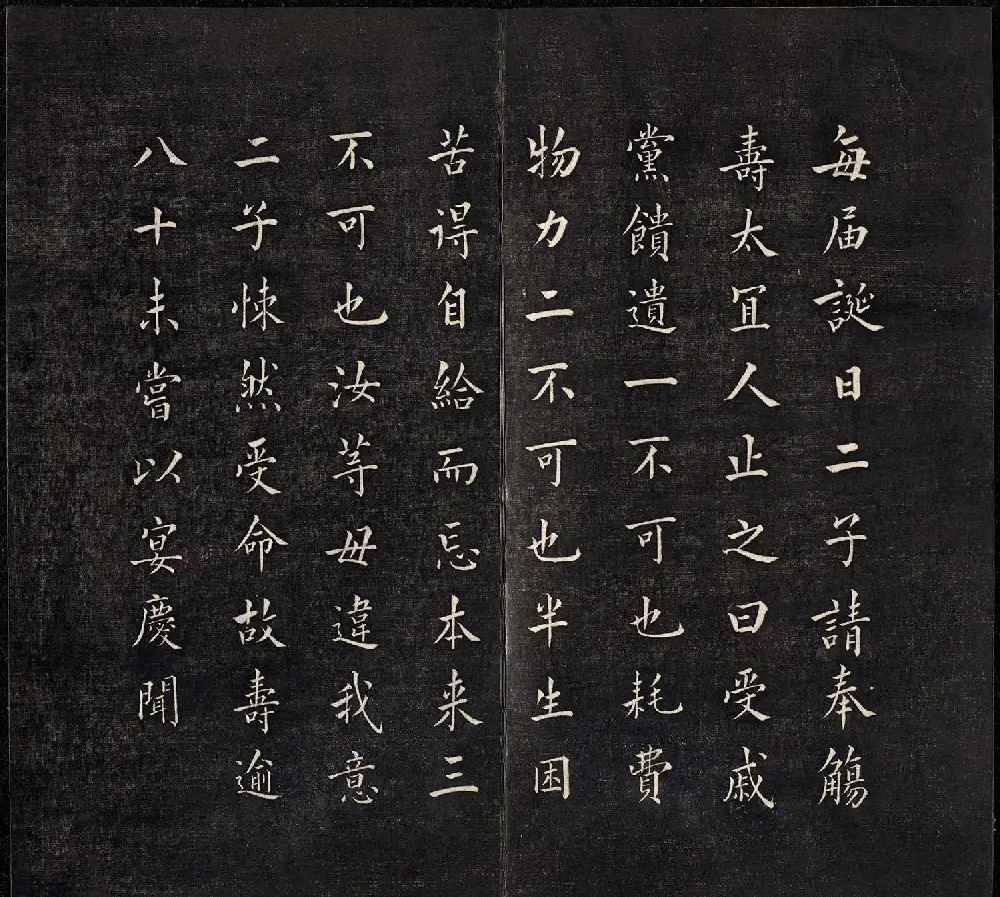 每届誕日二子請奉觴
壽太冝人止之曰受戚
黨饋遺一不可也耗費
物力二不可也半生困
苦得自給而忘本来三
不可也汝等毋違我意
二子悚然受命故壽逾
八十未嘗以宴慶聞